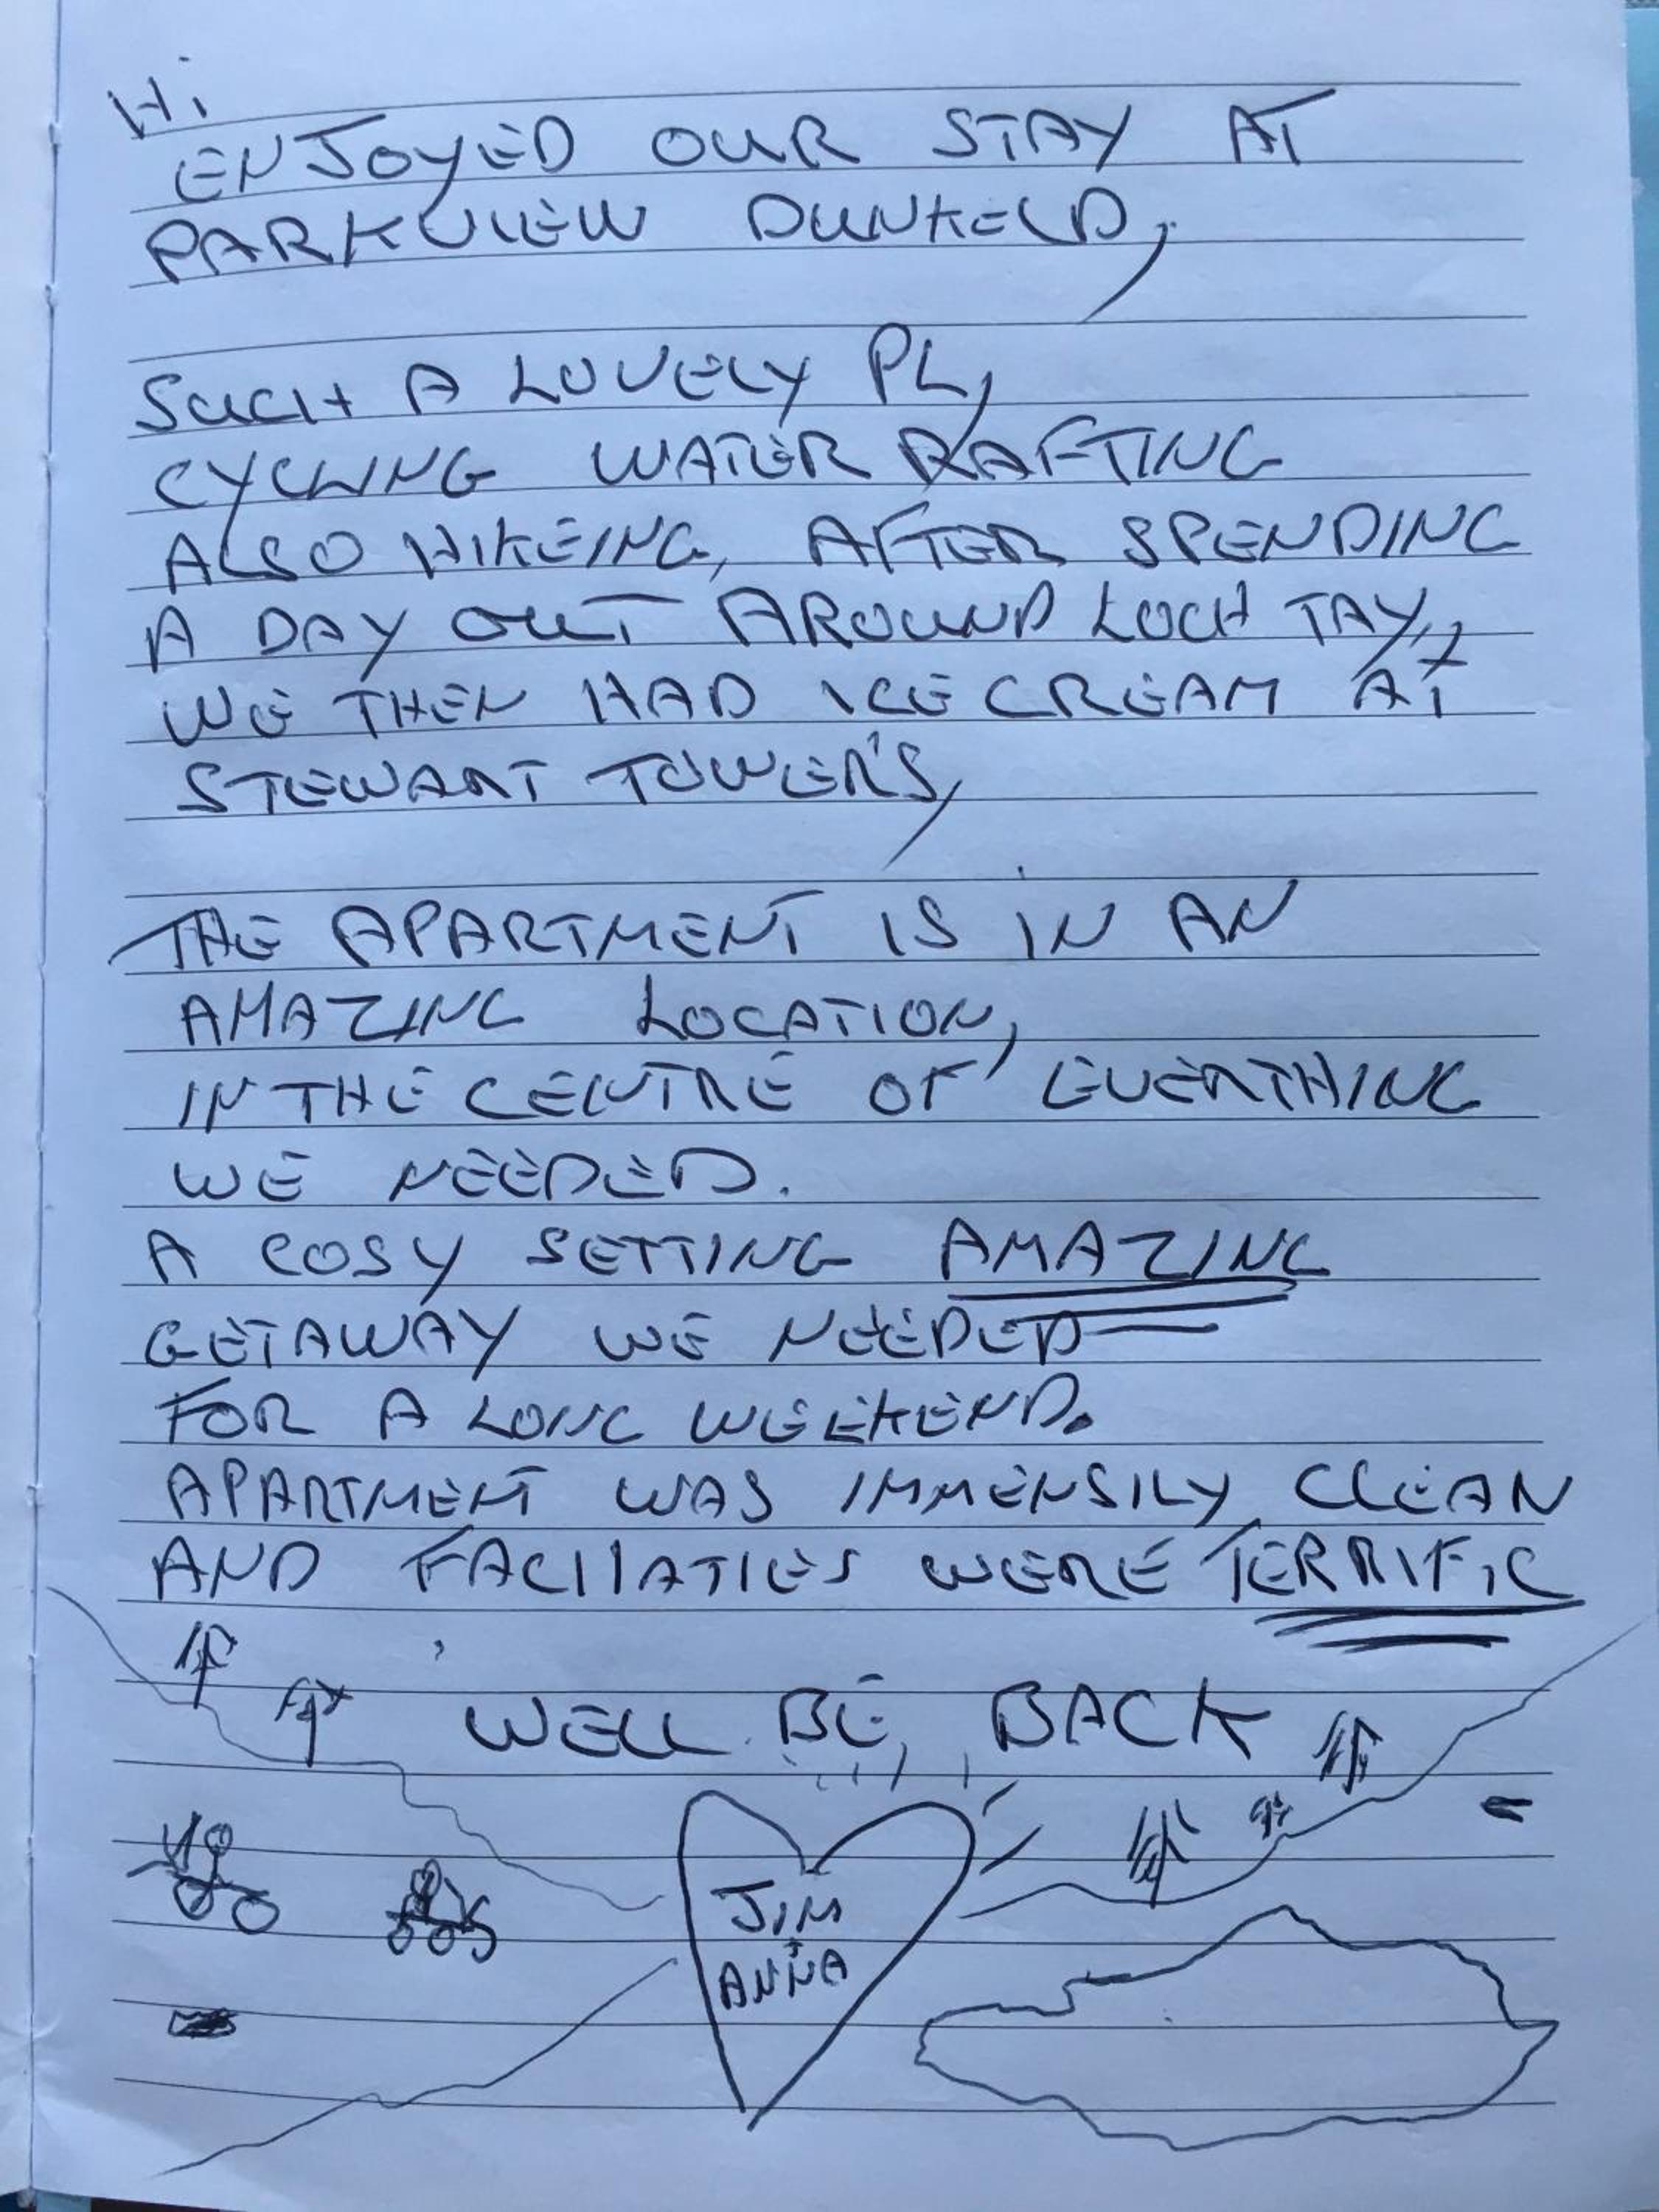 Hi
ENJOYED OUR STAY AT
PARKVIEW DUNKELD,
SUCH A LOVELY PL,
CYCLING WATER RAFTING
ALSO HIKEING, AFTER SPENDING
A DAY OUT AROUND LOCH TAY,
WE THEN HAD ICE CREAM AT
STEWART TOWER'S,
THE APARTMENT IS IN AN
AMAZING LOCATION,
IN THE CENTRE OF EVERTHING
WE NEEDED.
A COSY SETTING AMAZING
GETAWAY WE NEEDED
FOR A LONG WEEKEND.
APARTMENT WAS IMMENSILY CLEAN
AND FACILIATIES WERE TERRIFIC
WELL BE BACK
JIM
+
ANNA